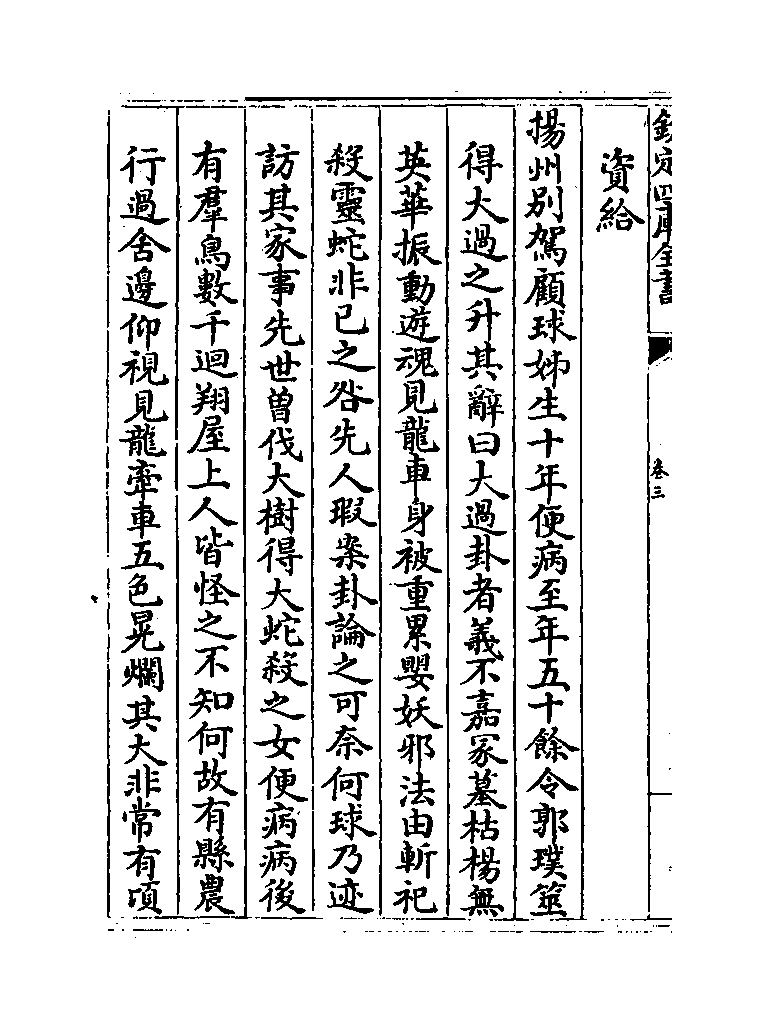 欽定四庫全書
卷三
資給
揚州别駕顧球姊生十年便病至年五十餘令郭璞筮
得大過之升其辭曰大過卦者義不嘉冢墓枯楊無
英華振動遊魂見龍車身被重累嬰妖邪法由斬祀
殺靈蛇非已之咎先人瑕案卦論之可奈何球乃迹
訪其家事先世曾伐大樹得大蛇殺之女便病病後
有羣鳥數千迴翔屋上人皆怪之不知何故有縣農
行過舍邊仰視見龍牽車五色晃爛其大非常有頃